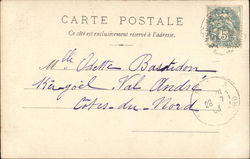 CARTE POSTALE
Ce côté est exclusivement réservé à l'adresse.
Mlle Odette Bastidon
Val André
Côtes-du-Nord
5
28